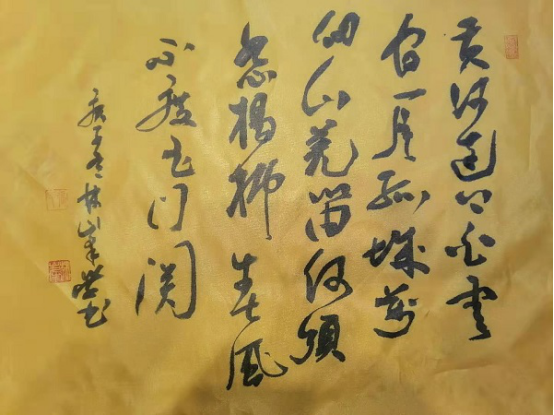 黄河远上白云
间一片孤城万
仞山羌笛何须
怨杨柳春风
不度玉门関
冬林峯书